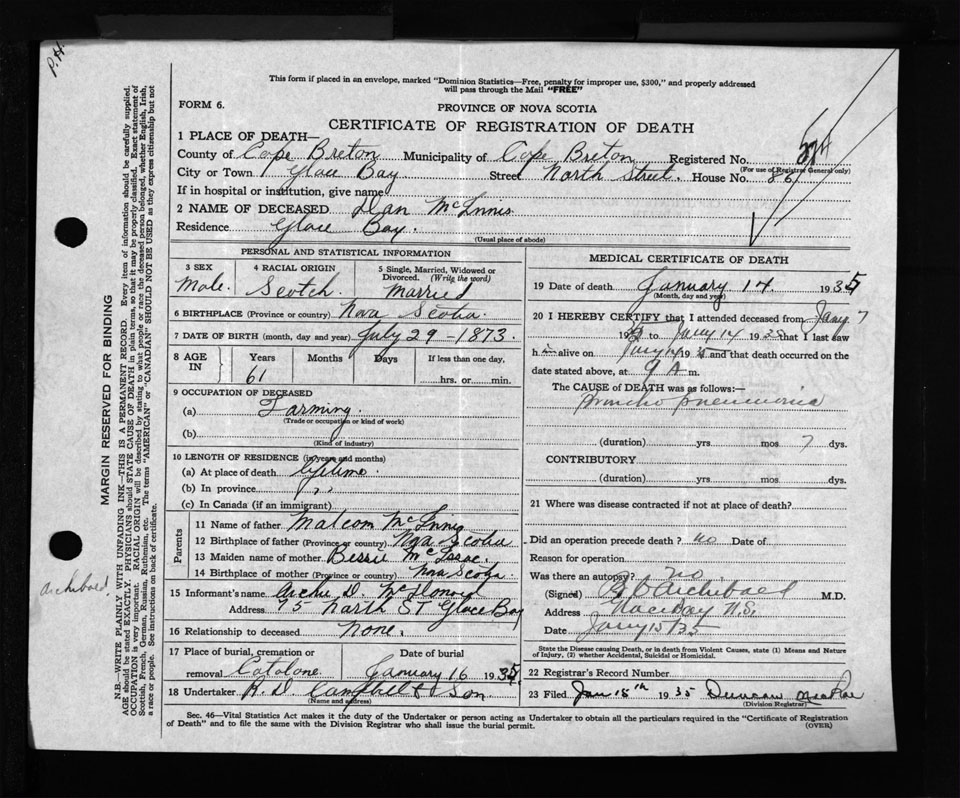 P.H.
This form if placed in an envelope, marked "Dominion Statistics—Free, penalty for improper use, $300," and properly addressed
will pass through the Mail "FREE"
FORM 6.
PROVINCE OF NOVA SCOTIA
CERTIFICATE OF REGISTRATION OF DEATH
1 PLACE OF DEATH—
County of Cape Breton Municipality of Cape Breton Registered No.
(For use of Registrar General only)
City or Town Glace Bay Street North Street. House No. 86
If in hospital or institution, give name
2 NAME OF DECEASED Dan McInnis
Residence Glace Bay.
(Usual place of abode)
PERSONAL AND STATISTICAL INFORMATION
3 SEX Male. 4 RACIAL ORIGIN Scotch. 5 Single, Married, Widowed or Divorced. (Write the word) Married
6 BIRTHPLACE (Province or country) Nova Scotia.
7 DATE OF BIRTH (month, day and year) July 29 - 1873.
8 AGE IN Years 61 Months Days If less than one day, hrs. or min.
9 OCCUPATION OF DECEASED
(a) Farming.
(Trade or occupation or kind of work)
(b)
(Kind of industry)
10 LENGTH OF RESIDENCE (in years and months)
(a) At place of death Lifetime.
(b) In province " "
(c) In Canada (if an immigrant)
Parents
11 Name of father Malcom McInnis
12 Birthplace of father (Province or country) Nova Scotia
13 Maiden name of mother Bessie McIsaac.
14 Birthplace of mother (Province or country) Nova Scotia.
15 Informant's name Archie D. McDonald
Address 95 North ST Glace Bay
16 Relationship to deceased None.
17 Place of burial, cremation or removal Catalone. Date of burial January 16 1935
18 Undertaker A. D. Campbell & Son
(Name and address)
MEDICAL CERTIFICATE OF DEATH
19 Date of death January 14. 1935
(Month, day and year)
20 I HEREBY CERTIFY that I attended deceased from Jany 7
1935 to Jany 14 1935 that I last saw
h im alive on Jany 14 1935 and that death occurred on the
date stated above, at 9 A m.
The CAUSE OF DEATH was as follows:—
Broncho pneumonia
(duration) yrs. mos 7 dys.
CONTRIBUTORY
(duration) yrs. mos dys.
21 Where was disease contracted if not at place of death?
Did an operation precede death? no Date of
Reason for operation
Was there an autopsy? no
(Signed) Archibald M.D.
Address Glace Bay N.S.
Date Jany 15/35
State the Disease causing Death, or in death from Violent Causes, state (1) Means and Nature
of Injury, (2) whether Accidental, Suicidal or Homicidal.
22 Registrar's Record Number
23 Filed Jan 18th 1935 Duncan MacRae
(Division Registrar)
Sec. 46—Vital Statistics Act makes it the duty of the Undertaker or person acting as Undertaker to obtain all the particulars required in the "Certificate of Registration
of Death" and to file the same with the Division Registrar who shall issue the burial permit.
(OVER)
MARGIN RESERVED FOR BINDING
N.B.—WRITE PLAINLY WITH UNFADING INK—THIS IS A PERMANENT RECORD. Every item of information should be carefully supplied.
AGE should be stated EXACTLY. PHYSICIANS should STATE CAUSE OF DEATH in plain terms, so that it may be properly classified. Exact statement of
OCCUPATION is very important. RACIAL ORIGIN will be described by stating to what people or race the deceased person belonged, whether English, Irish,
Scottish, French, German, Russian, Ruthenian, etc. The terms "AMERICAN" or "CANADIAN" SHOULD NOT BE USED as they express citizenship but not
a race or people. See instructions on back of certificate.
Archibald.